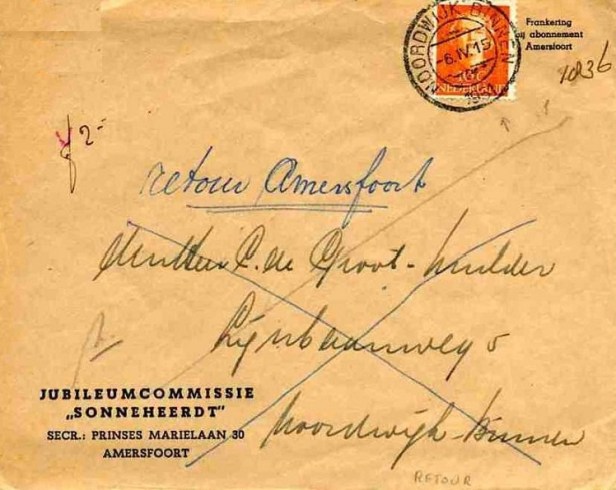 NOORDWIJK BINNEN
6.IV.15
NEDERLAND
Frankering
bij abonnement
Amersfoort
1036
f 2-
retour Amersfoort
C. de Groot-Mulder
Lijnbaanweg 5
Noordwijk-Binnen
JUBILEUMCOMMISSIE
„SONNEHEERDT”
SECR.: PRINSES MARIELAAN 30
AMERSFOORT
RETOUR